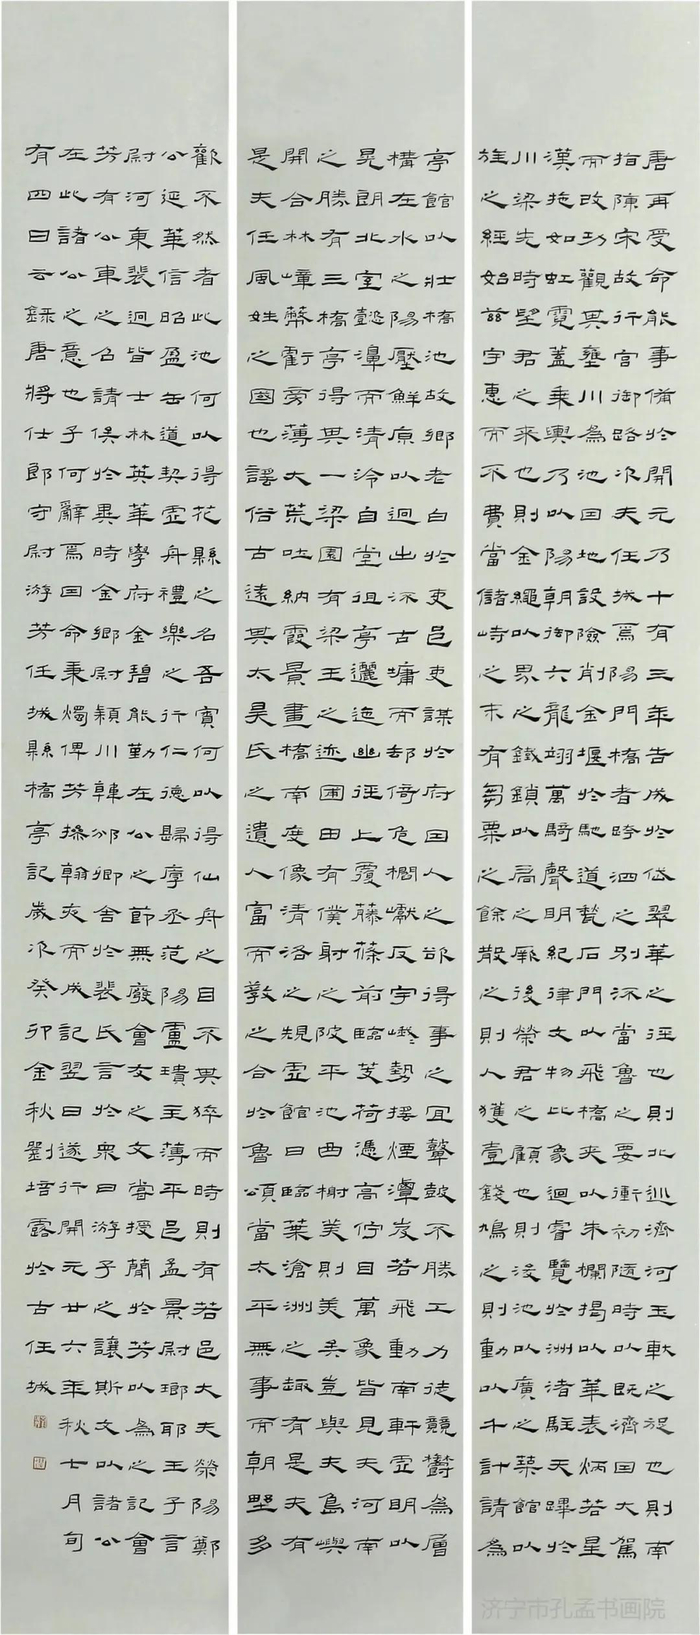 唐再受命能事備於開元乃十有三年告成於岱翠華之迬也則北巡濟河玉軑之旋也則南
指陳宋故行宮御路次夫任城焉陽門橋者跨泗之別泝當魯之要衝初隨時以既濟因大駕
而改功觀其壅川為池因地設險削金堰於馳道甃石門以飛橋夾以朱欄揭以華表炳若星
漢拖如虹霓蓋乘輿乃以陽朝御六龍翊萬騎聲明紀律文物比象迴睿覽於洲渚駐天蹕於
川梁先時望君之來也則金繩以界之鐵鎖以扃之厥後榮君之顧也則浚池以廣之築館以
旌之經始茲宇惠而不費當儲峙之末有芻粟之餘散之則人獲壹錢鳩之則動以千計請為
亭館以壯橋池故鄉老白於吏邑吏謀於府因人之欲得事之宜鼛鼓不勝工力徒競欝為層
構在水之陽壓鮮原以迥出泝古墉而却倚危櫩巘反宇勢摇煙潭岌若飛動南軒虛明以
晃朗北室懿濞而清泠自堂徂亭邐迤幽徑上覆藤篠前臨芰荷憑高佇目萬象皆見夫河南
之勝有三橋亭得其一梁園有梁王之迹圃田有僕射之陂平池曲榭美則美矣豈與夫島嶼
開合林嶂蔽虧旁薄大荒吐納霞景畫橋南度像清洛之規虛館日臨葉滄洲之趣有是夫有
是夫任風姓之國也謡俗古遠其太昊氏之遺人富而教之合於魯頌當太平無事而朝野多
歡不然者此池何以得花縣之名吾賓何以得仙舟之目不其猝而時則有若邑大夫滎陽鄭
公延華信昭盈缶道契虛舟禮樂之行仁德歸厚丞范陽盧瓚主薄平邑孟景尉瑯耶王子言
尉河東裴迥皆士林英華學府金碧能勤在公之節無廢會友之文嘗授簡於芳以為之記會
芳有公車之召請俟於異時金鄉尉潁川韓邠卿舍於裴氏言於衆曰游子之讓斯文以諸公
在此諸公之意也子何辭焉因命秉燭俾芳操翰夜而成記翌日遂行開元廿六年秋七月旬
有四日云錄唐將仕郎守尉游芳任城縣橋亭記歲次癸卯金秋劉培露於古任城
济宁市孔孟书画院